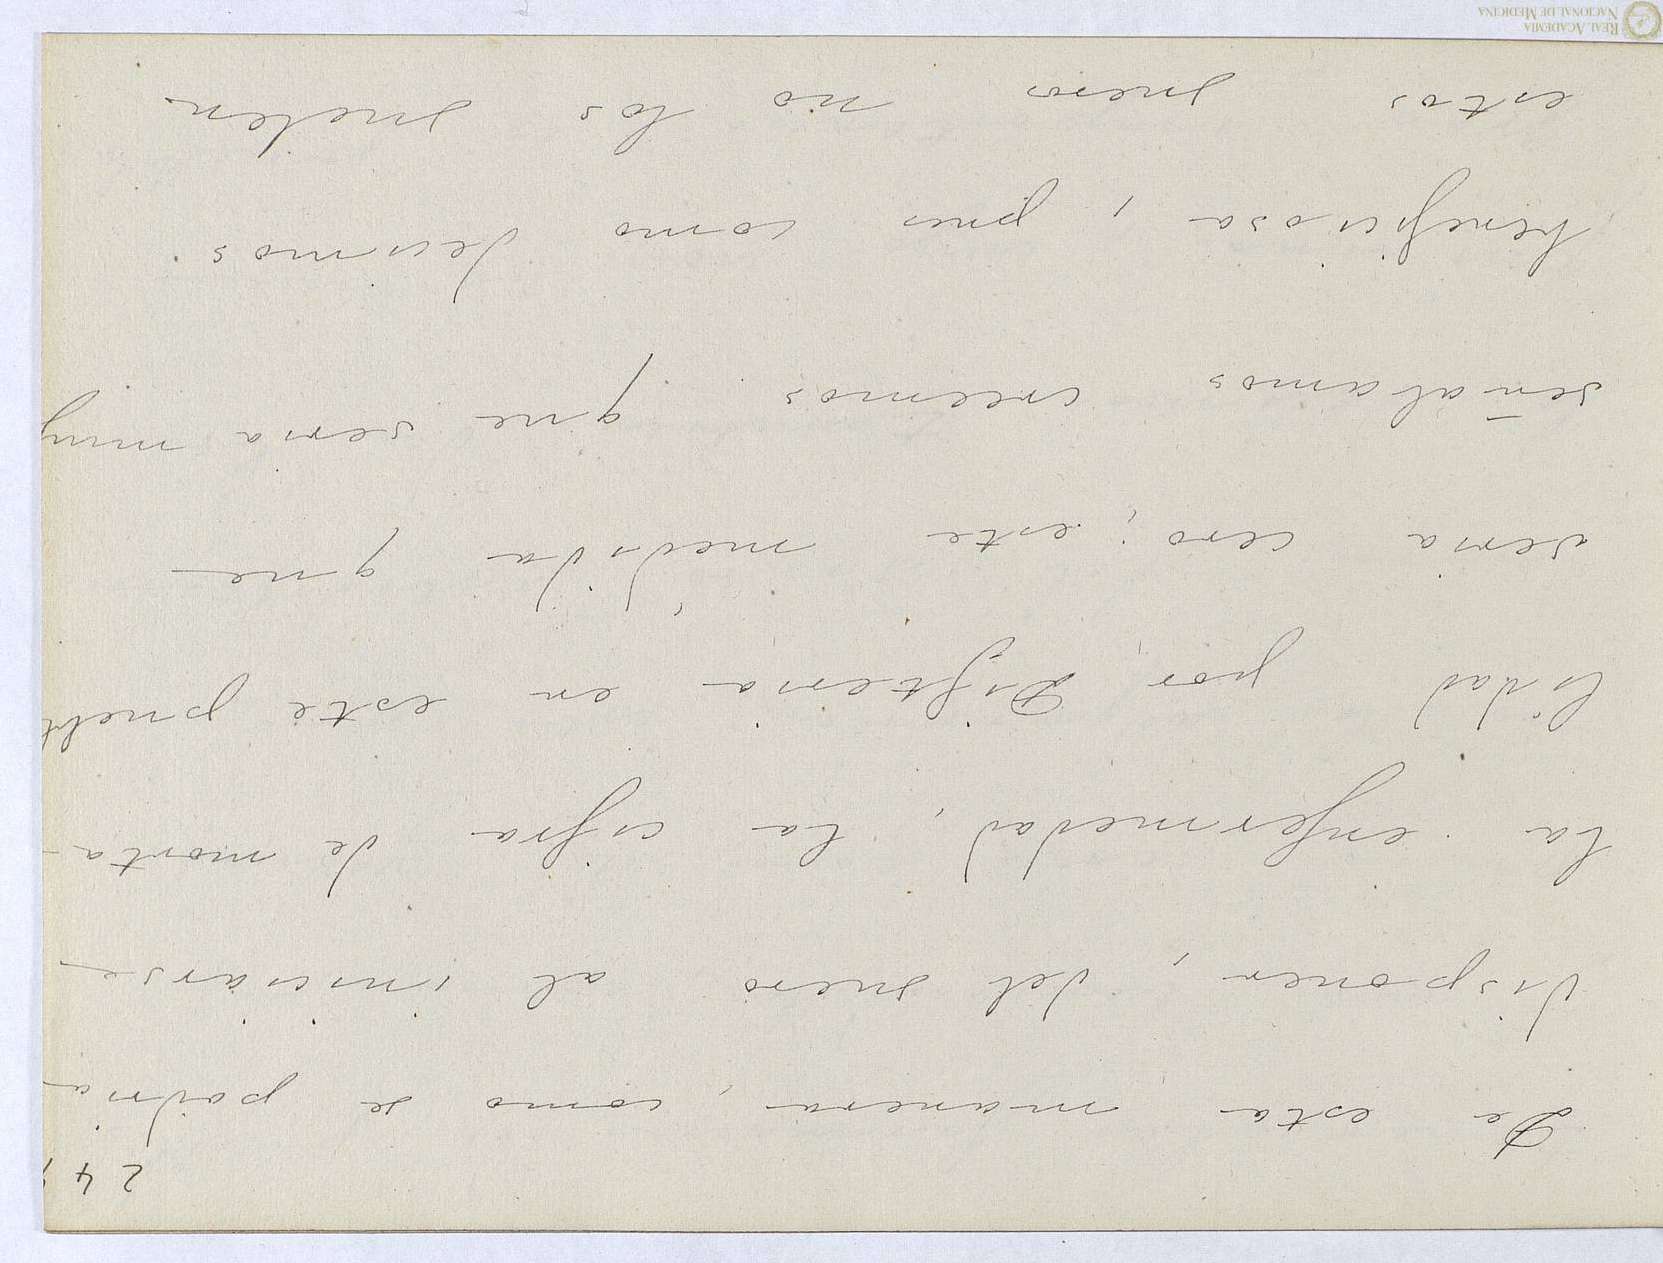 24
De esta manera, como se podria
disponer, del suero al iniciarse
la enfermedad, la cifra de morta-
lidad por Difteria en este puebl
seria cero; este medida que
señalamos creemos que seria muy
beneficiosa, pues como decimos
estos sueros no los suelen
REAL ACADEMIA
NACIONAL DE MEDICINA